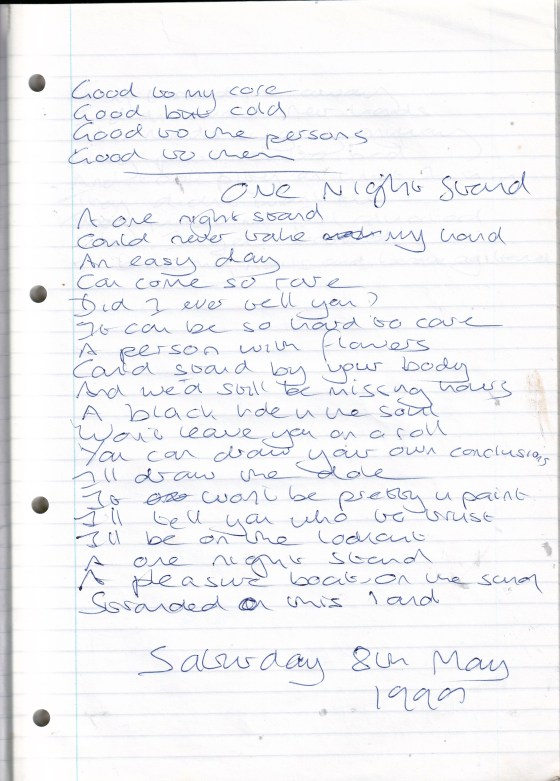 Good to my core
Good but cold
Good to the persons
Good to them
One Night Stand
A one night stand
Could never take my hand
An easy day
Can come so rare
Did I ever tell you?
It can be so hard to care
A person with flowers
Could stand by your body
And we'd still be missing hours
A black hole in the soul
Won't leave you on a roll
You can draw your own conclusions
I'll draw the dole
It won't be pretty in paint
I'll tell you who to trust
I'll be on the lookout
A one night stand
A pleasure boat on the sand
Stranded on this land
Saturday 8th May
1999